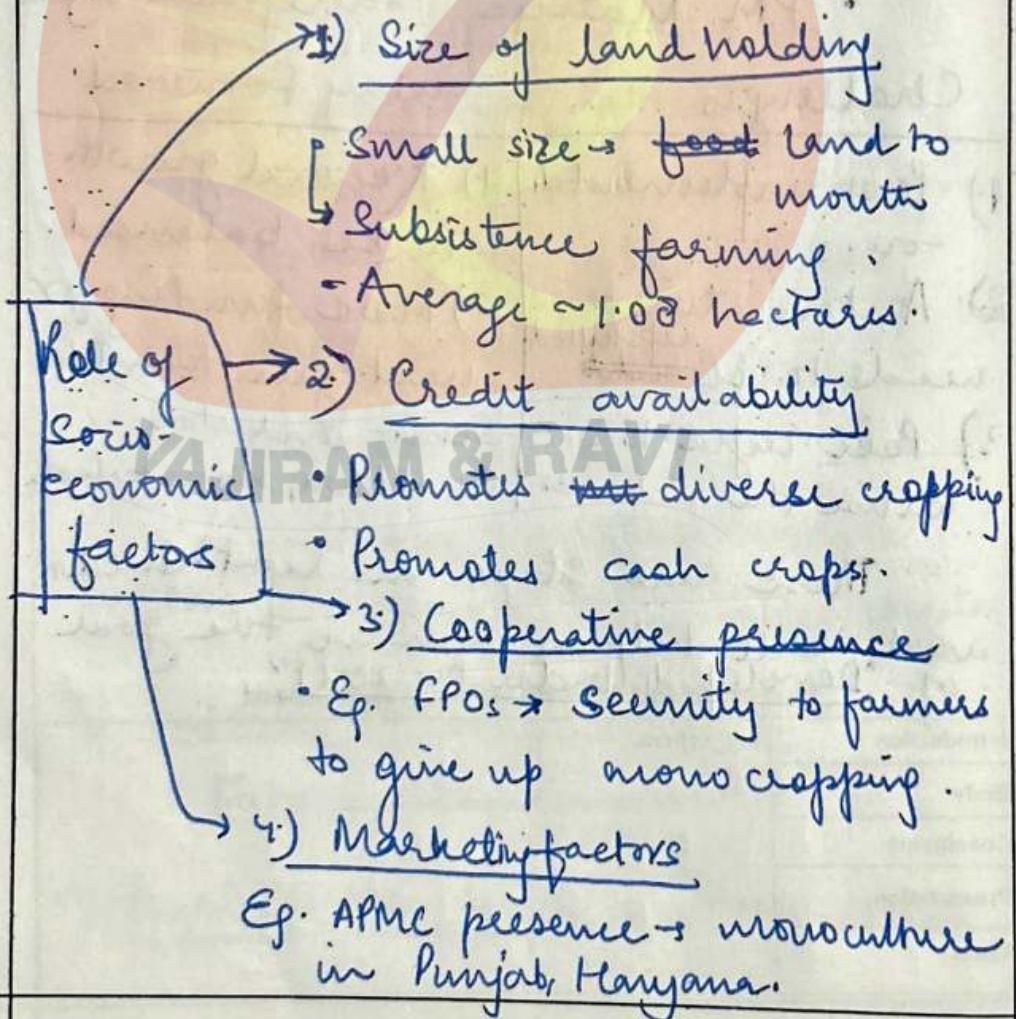 1.) Size of land holding
Small size → food land to
mouth
Subsistence farming.
- Average ~1.08 hectares.
Role of
Socio-
economic
factors
2.) Credit availability
• Promotes diverse cropping
• Promotes cash crops.
3.) Cooperative presence
• Eg. FPOs → Security to farmers
to give up mono cropping.
4.) Marketing factors
Eg. APMC presence → monoculture
in Punjab, Haryana.
VAJIRAM & RAVI